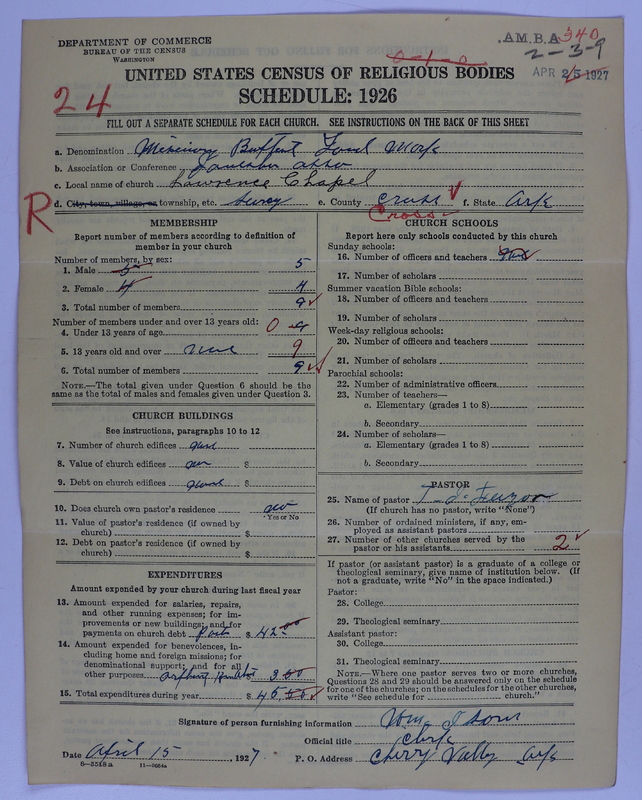 DEPARTMENT OF COMMERCE
BUREAU OF THE CENSUS
WASHINGTON
A.M.B.A 340
0-1-0
2-3-9
APR 25 1927
UNITED STATES CENSUS OF RELIGIOUS BODIES
24
SCHEDULE: 1926
FILL OUT A SEPARATE SCHEDULE FOR EACH CHURCH. SEE INSTRUCTIONS ON THE BACK OF THIS SHEET
a. Denomination
b. Association or Conference
c. Local name of church Lawrence Chapel
R
d. City, town, village, or township, etc. e. County Cross f. State Ark
MEMBERSHIP
Report number of members according to definition of member in your church
Number of members, by sex:
1. Male 5 5
2. Female 4 4
3. Total number of members 9
Number of members under and over 13 years old:
4. Under 13 years of age 0 9
5. 13 years old and over 9
6. Total number of members 9
NOTE.—The total given under Question 6 should be the same as the total of males and females given under Question 3.
CHURCH BUILDINGS
See instructions, paragraphs 10 to 12
7. Number of church edifices
8. Value of church edifices $
9. Debt on church edifices $
10. Does church own pastor's residence no
Yes or No
11. Value of pastor's residence (if owned by church) $
12. Debt on pastor's residence (if owned by church) $
EXPENDITURES
Amount expended by church during last fiscal year
13. Amount expended for salaries, repairs, and other running expenses; for improvements or new buildings; and for payments on church debt $ 42.00
14. Amount expended for benevolences, including home and foreign missions; for denominational support; and for all other purposes 3.00
15. Total expenditures during year $ 45.00
CHURCH SCHOOLS
Report here only schools conducted by this church
Sunday schools:
16. Number of officers and teachers
17. Number of scholars
Summer vacation Bible schools:
18. Number of officers and teachers
19. Number of scholars
Week-day religious schools:
20. Number of officers and teachers
21. Number of scholars
Parochial schools:
22. Number of administrative officers
23. Number of teachers—
a. Elementary (grades 1 to 8)
b. Secondary
24. Number of scholars—
a. Elementary (grades 1 to 8)
b. Secondary
PASTOR
25. Name of pastor
(If church has no pastor, write "None")
26. Number of ordained ministers, if any, employed as assistant pastors
27. Number of other churches served by the pastor or his assistants 2
If pastor (or assistant pastor) is a graduate of a college or theological seminary, give name of institution below. (If not a graduate, write "No" in the space indicated.)
Pastor:
28. College
29. Theological seminary
Assistant pastor:
30. College
31. Theological seminary
NOTE.—Where one pastor serves two or more churches, Questions 28 and 29 should be answered only on the schedule for one of the churches; on the schedules for the other churches, write "See schedule for church."
Signature of person furnishing information
Official title Clerk
Date April 15 1927 P. O. Address Cherry Valley Ark
8-5518a 11-9664a